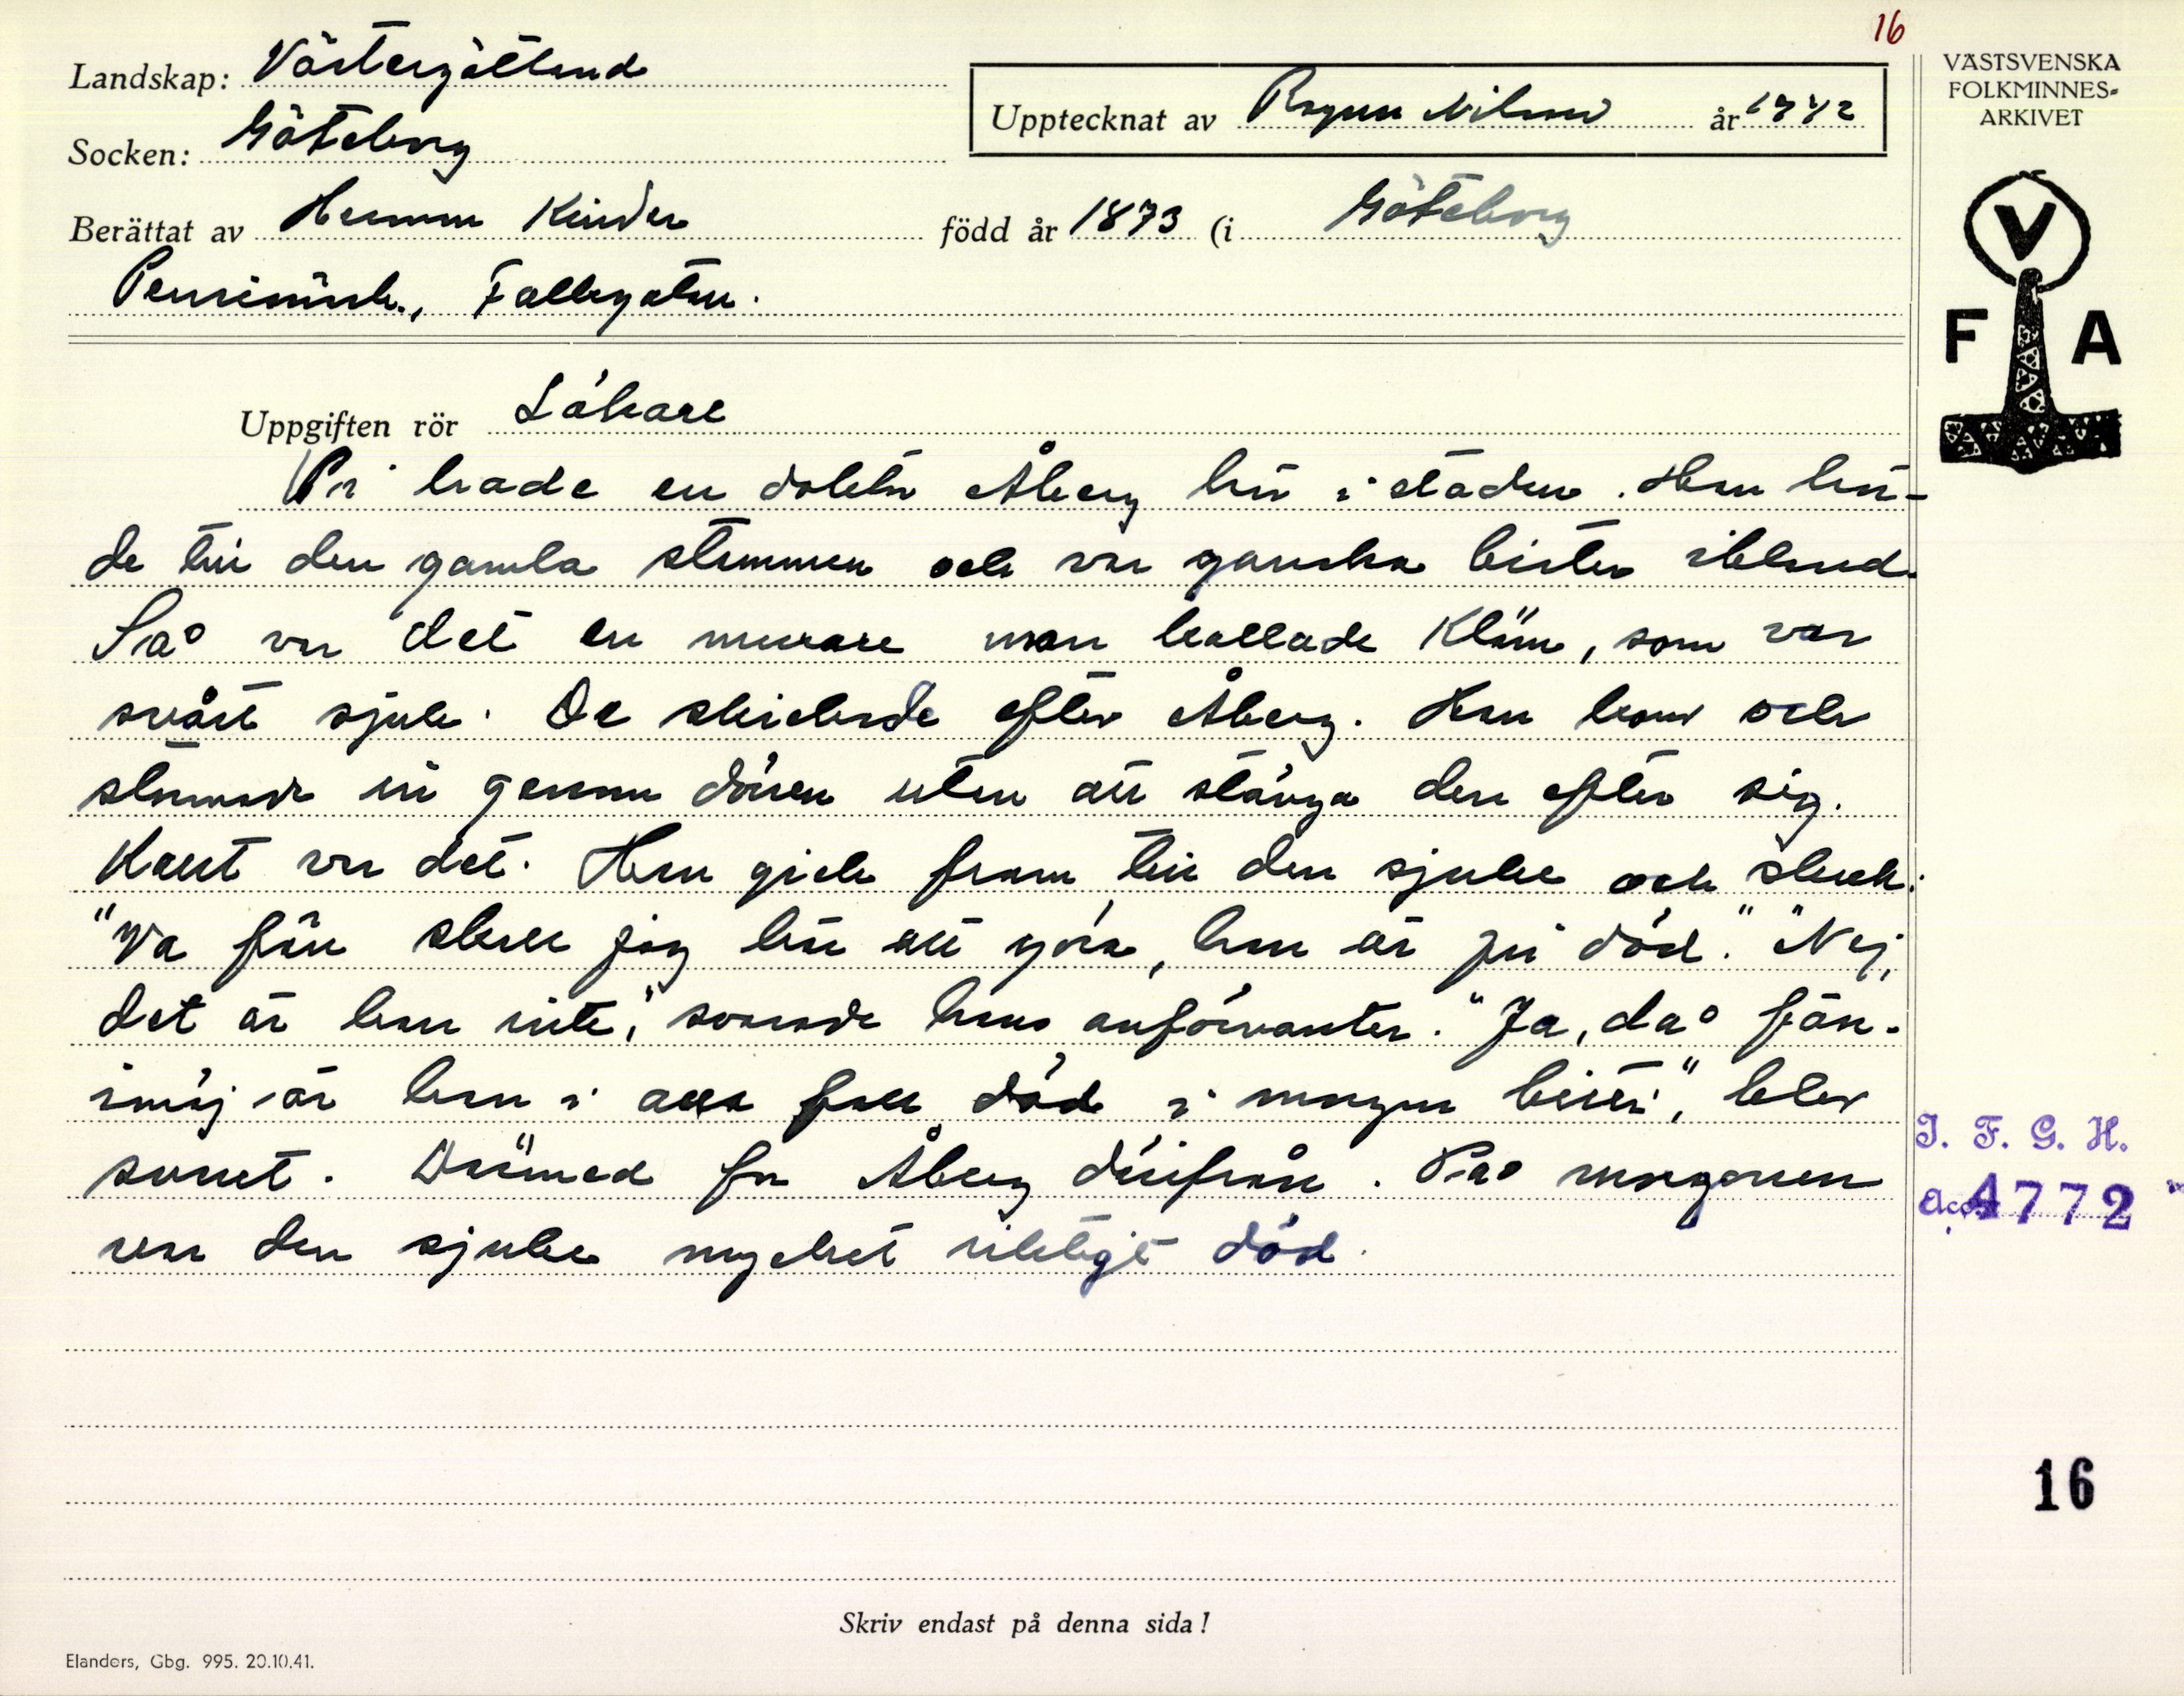 16
Landskap: Västergötland
VÄSTSVENSKA
FOLKMINNES-
ARKIVET
Upptecknat av Ragnar Nilsson år 1942
Socken: Göteborg
Berättat av Herman Kinder född år 1873 (i Göteborg
V
F A
Pensionärsh., Fallegatan.
Uppgiften rör Läkare
Vi hade en doktor Åberg här i staden. Han hör-
de till den gamla stammen och var ganska bister ibland.
Så var det en murare man kallade Kläm, som var
svårt sjuk. De skickade efter Åberg. Han kom och
stormade in genom dörren utan att stänga den efter sig.
Kallt var det. Han gick fram till den sjuke och skrek:
"Va fan skall jag här att göra, han är ju död." "Nej,
det är han inte," svarade hans anförvanter. "Ja, då fan-
imej är han i alla fall död i morgon bitti," blev
svaret. Därmed for Åberg därifrån. På morgonen
var den sjuke mycket riktigt död.
I. F. G. H.
Acc. 4772
16
Skriv endast på denna sida!
Elanders, Gbg. 995. 20.10.41.